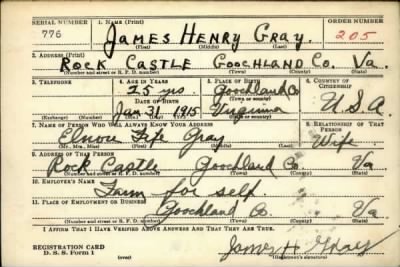 SERIAL NUMBER 1. NAME (Print) ORDER NUMBER
776 JAMES HENRY GRAY. 205
(First) (Middle) (Last)
2. ADDRESS (Print)
ROCK CASTLE GOOCHLAND CO. VA.
(Number and street or R. F. D. number) (Town) (County) (State)
3. TELEPHONE 4. AGE IN YEARS 5. PLACE OF BIRTH 6. COUNTRY OF CITIZENSHIP
25 yrs Goochland Co
DATE OF BIRTH (Town or county)
Jan. 31, 1915 Virginia U.S.A.
(Exchange) (Number) (Mo.) (Day) (Yr.) (State or country)
7. NAME OF PERSON WHO WILL ALWAYS KNOW YOUR ADDRESS 8. RELATIONSHIP OF THAT PERSON
Elnora Fife Gray Wife
(Mr., Mrs., Miss) (First) (Middle) (Last)
9. ADDRESS OF THAT PERSON
Rock Castle Goochland Co Va
(Number and street or R. F. D. number) (Town) (County) (State)
10. EMPLOYER'S NAME
Farm for self
11. PLACE OF EMPLOYMENT OR BUSINESS
Goochland Co. Va
(Number and street or R. F. D. number) (Town) (County) (State)
I AFFIRM THAT I HAVE VERIFIED ABOVE ANSWERS AND THAT THEY ARE TRUE.
REGISTRATION CARD
D. S. S. Form 1 (over) James H Gray
(Registrant's signature)